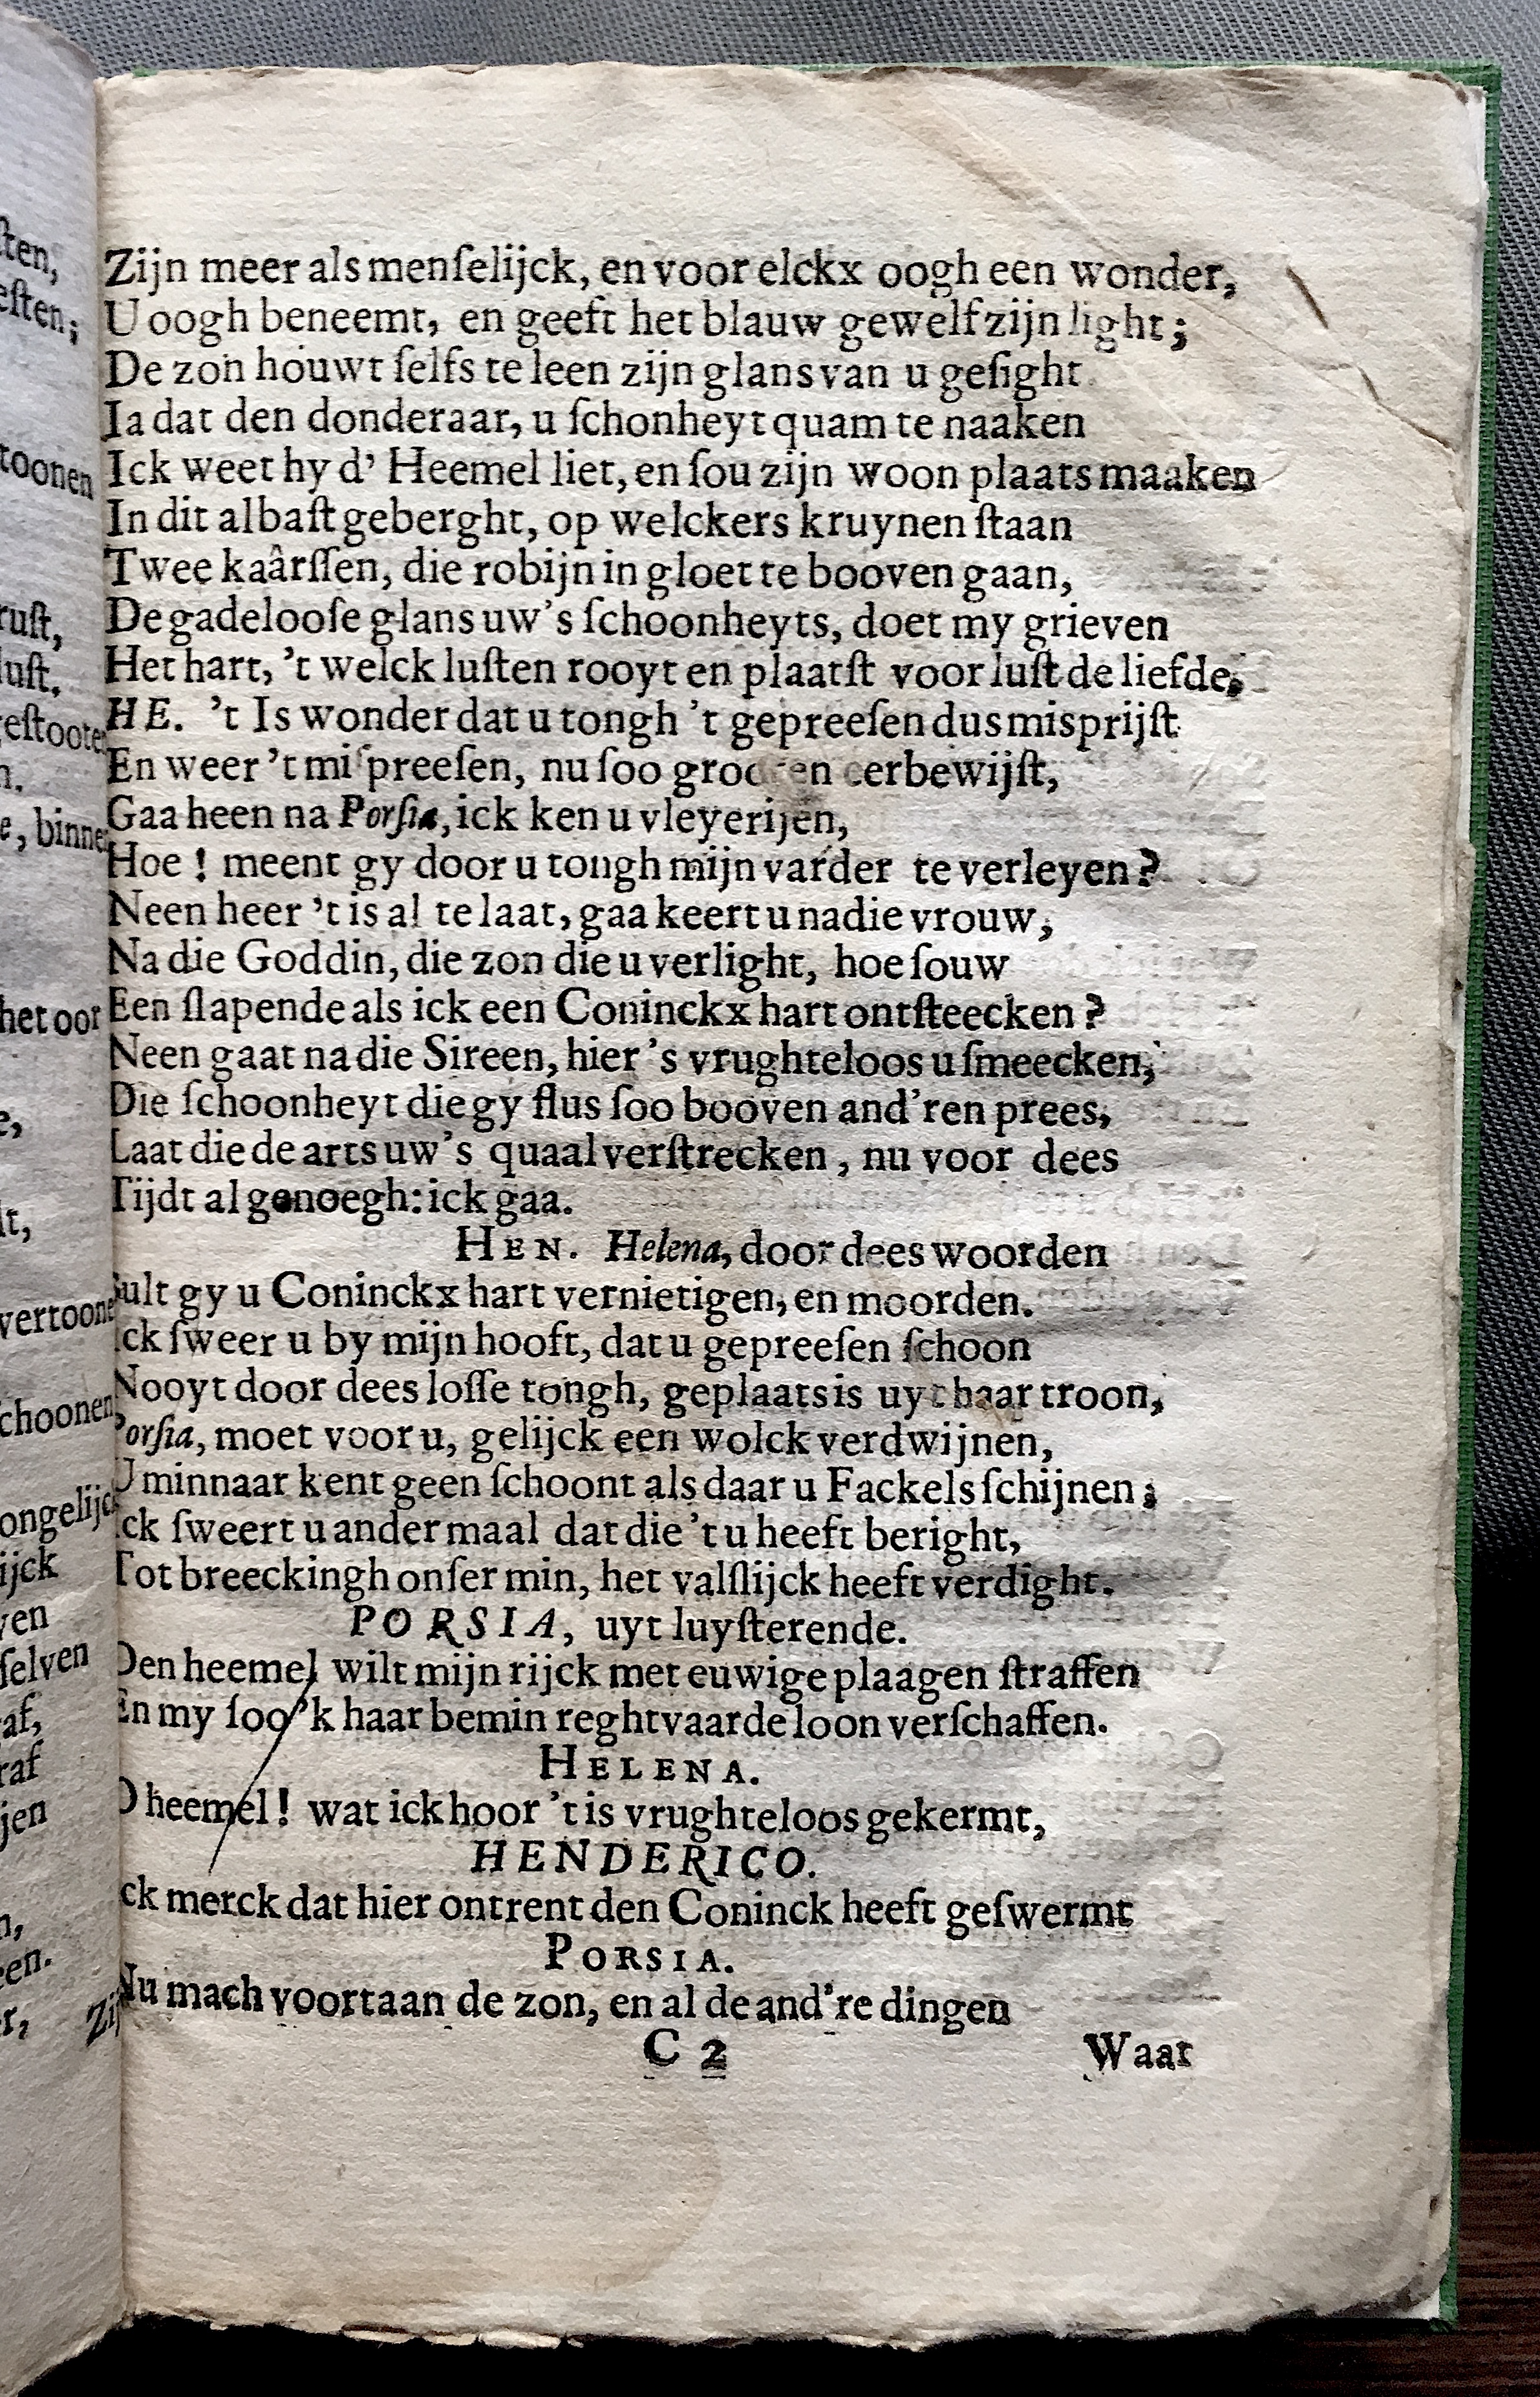 Zijn meer als menſelijck, en voor elckx oogh een wonder,
U oogh beneemt, en geeft het blauw gewelf zijn light;
De zon houwt ſelfs te leen zijn glans van u geſight.
Ia dat den donderaar, u ſchonheyt quam te naaken
Ick weet hy d' Heemel liet, en ſou zijn woon plaats maaken
In dit albaſt geberght, op welckers kruynen ſtaan
Twee kaârſſen, die robijn in gloet te booven gaan,
De gadelooſe glans uw's ſchoonheyts, doet my grieven
Het hart, 't welck luſten rooyt en plaatſt voor luſt de liefde,
HE. 't Is wonder dat u tongh 't gepreeſen dus misprijſt
En weer 't miſpreeſen, nu ſoo eerbewijſt,
Gaa heen na Porſia, ick ken u vleyerijen,
Hoe ! meent gy door u tongh mijn varder te verleyen?
Neen heer 't is al te laat, gaa keert u na die vrouw,
Na die Goddin, die zon die u verlight, hoe ſouw
Een ſlapende als ick een Coninckx hart ontſteecken?
Neen gaat na die Sireen, hier 's vrughteloos u ſmeecken,
Die ſchoonheyt die gy flus ſoo booven and'ren prees,
Laat die de arts uw's quaal verſtrecken, nu voor dees
Tijdt al genoegh: ick gaa.
HEN. Helena, door dees woorden
Sult gy u Coninckx hart vernietigen, en moorden.
Ick ſweer u by mijn hooft, dat u gepreeſen ſchoon
Nooyt door dees loſſe tongh, geplaats is uyt haar troon,
Porſia, moet voor u, gelijck een wolck verdwijnen,
U minnaar kent geen ſchoont als daar u Fackels ſchijnen;
Ick ſweert u andermaal dat die 't u heeft beright,
Tot breeckingh onſer min, het valſlijck heeft verdight.
PORSIA, uyt luyſterende.
Den heemel wilt mijn rijck met euwige plaagen ſtraffen
En my ſoo 'k haar bemin reghtvaarde loon verſchaffen.
HELENA.
O heemel! wat ick hoor 't is vrughteloos gekermt,
HENDERICO.
Ick merck dat hier ontrent den Coninck heeft geſwermt
PORSIA.
Nu mach voortaan de zon, en al de and're dingen
C 2 Waar